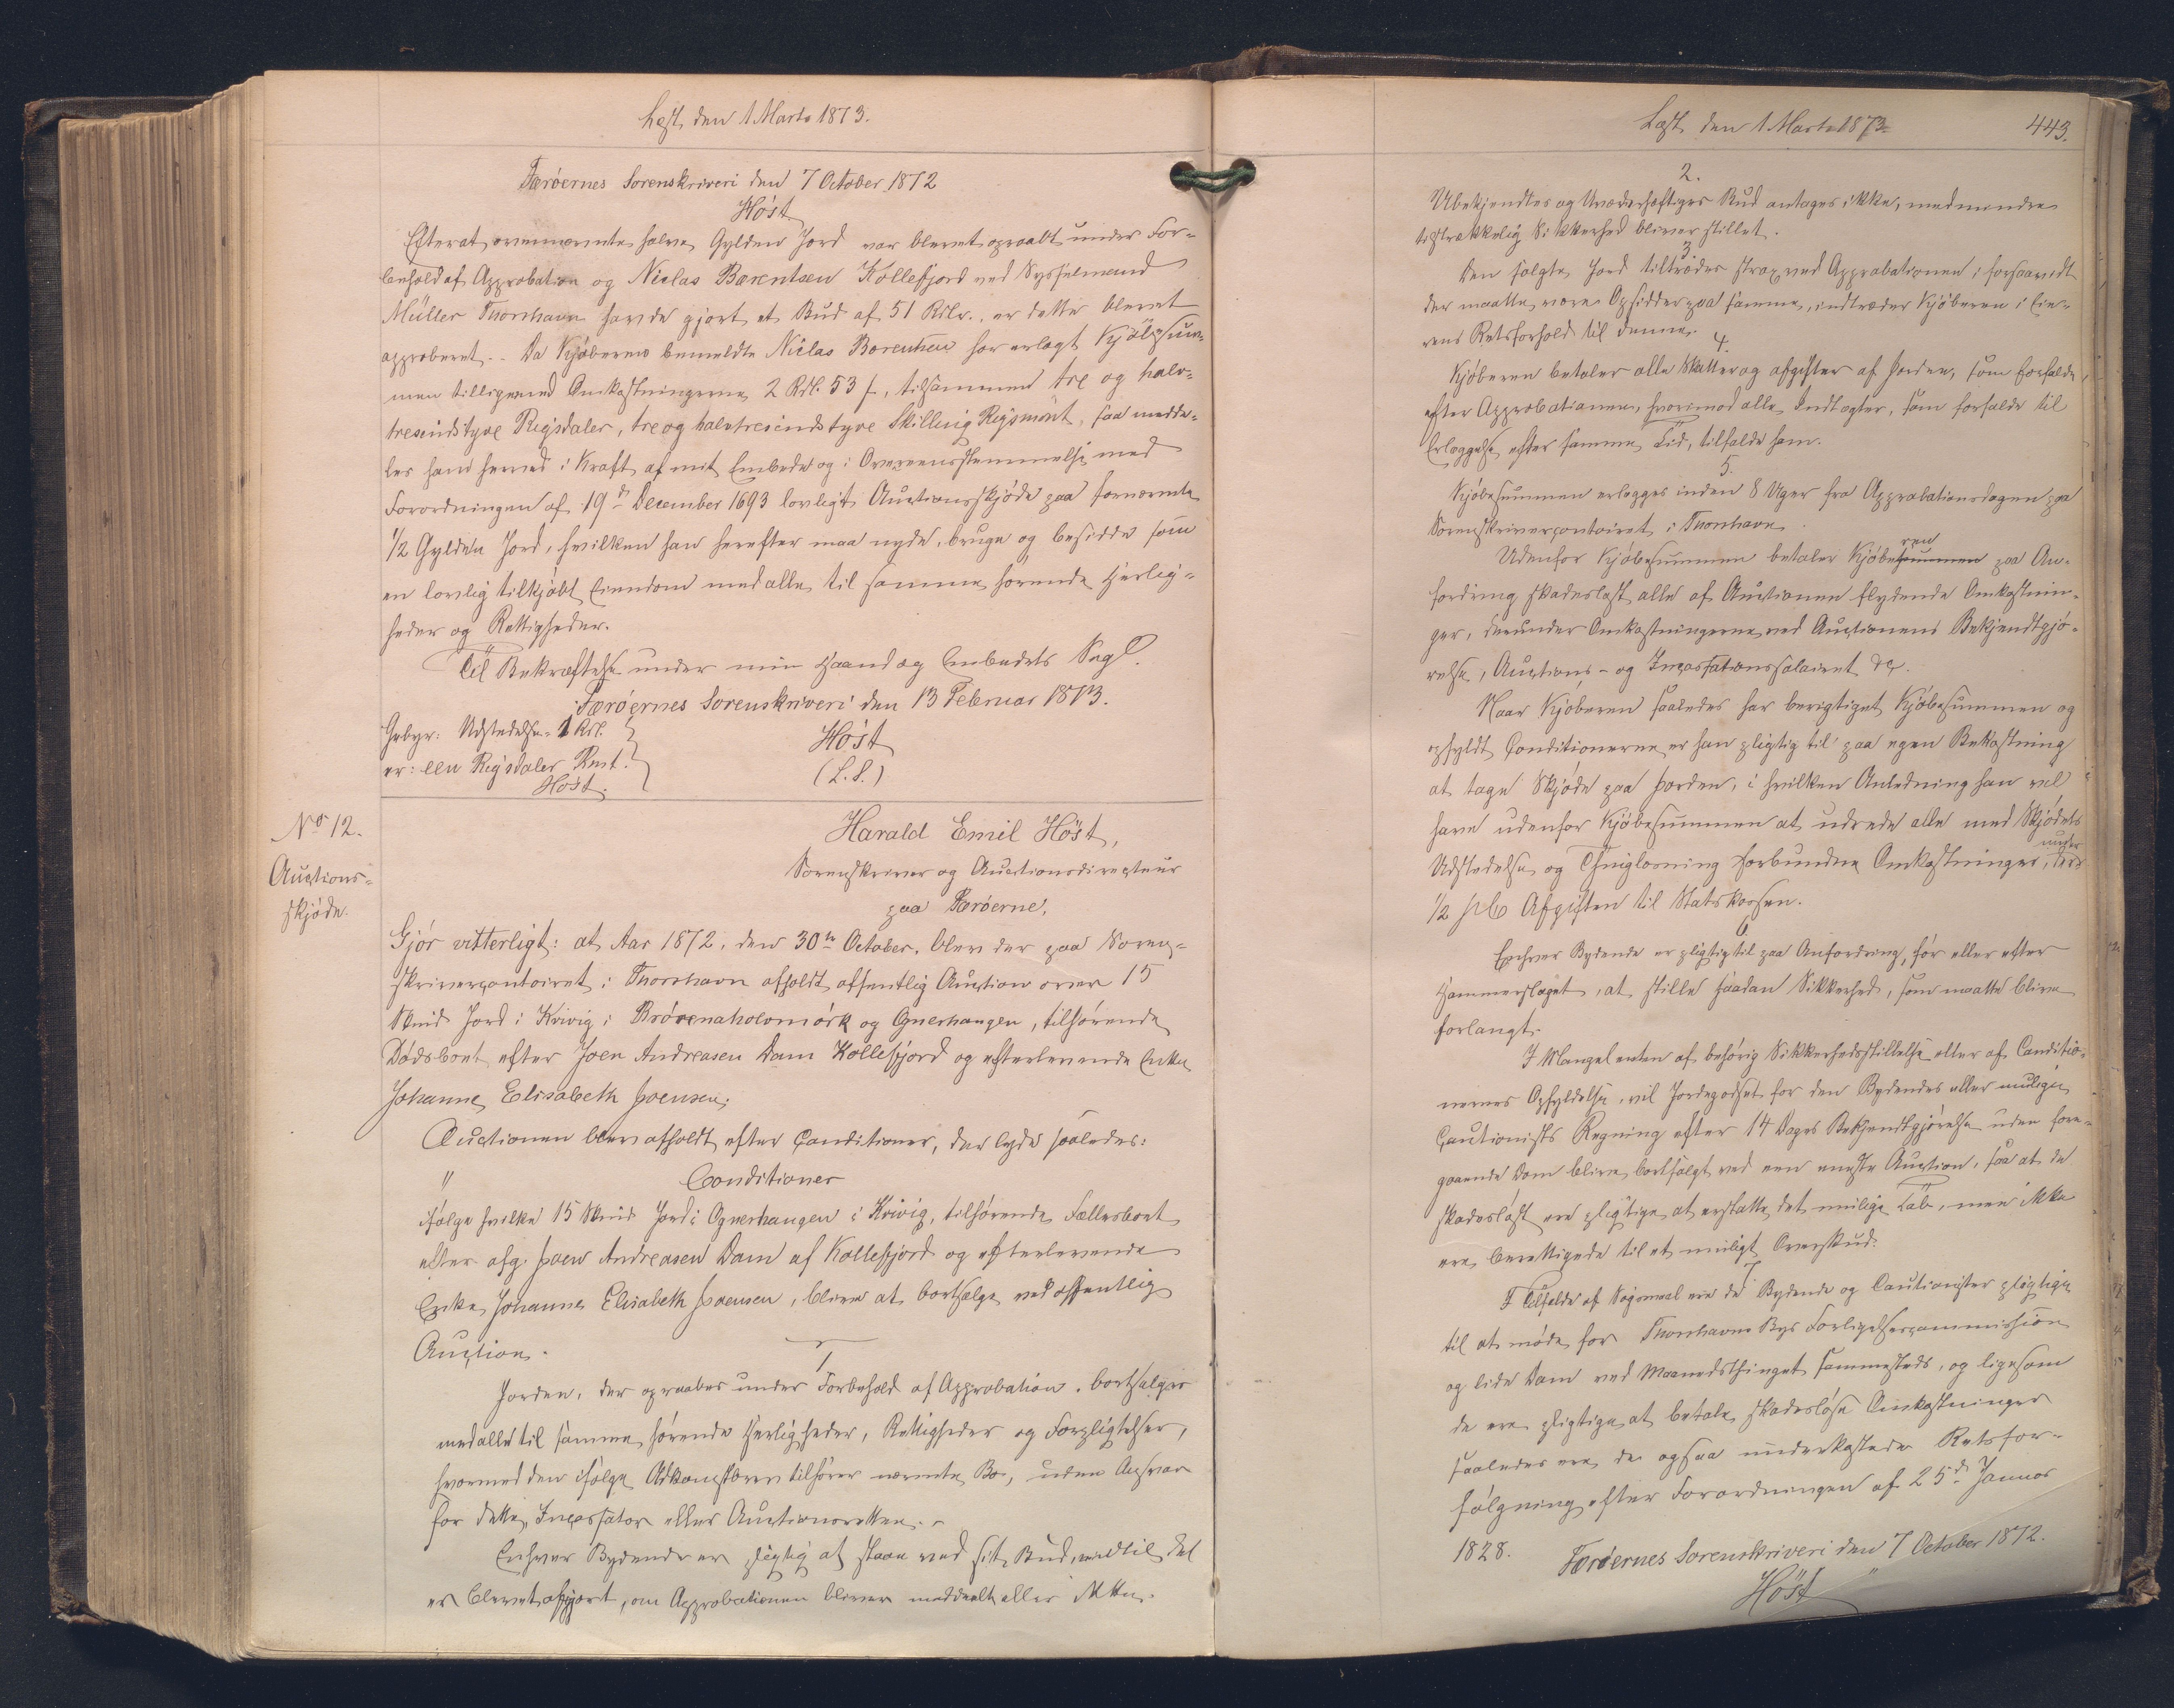 Læst den 1 Marts 1873.
Færöernes Sorenskriveri den 7 October 1872
Höst
Efterat ovennævnte halve Gylden Jord var blevet opraabt under For-
behold af Approbation og Niclas Barentsen Kollefjord ved Sysselmand
Müller Thorshavn havde gjort et Bud af 51 Rdlr., er dette blevet
approberet. Da Kjöberen bemeldte Niclas Barentsen har erlagt Kjöbesum-
men tilligemed Omkostningerne 2 Rdl. 53 s, tilsammen tre og halv-
tresindstyve Rigsdaler, tre og halvtresindstyve Skilling Rigsmönt, saa medde-
les ham herved i Kraft af mit Embede og i Overeensstemmelse med
Forordningen af 19de December 1693 lovligt Auctionsskjöde paa fornævnte
1/2 Gylden Jord, hvilken han herefter maa nyde, bruge og besidde som
en lovlig tilkjöbt Eiendom med alle til samme hörende Herlig-
heder og Rettigheder.
Til Bekræftelse under min Haand og Embedets Segl.
Færöernes Sorenskriveri den 13 Februar 1873.
Gebyr: Udstedelse 1 Rdl.
Höst
er: een Rigsdaler Rmt.
(L.S.)
Höst.
No 12.
Auctions-
skjöde.
Harald Emil Höst,
Sorenskriver og Auctionsdirecteur
paa Færöerne,
Gjör vitterligt: at Aar 1872, den 30te October, blev der paa Soren-
skrivercontoiret i Thorshavn afholdt offentlig Auction over 15
Skind Jord i Kvivig i Brórenaholomörk og Ognerhaugen, tilhörende
Dödsboet efter Joen Andreasen Dam Kollefjord og efterlevende Enke
Johanne Elisabeth Joensen;
Auctionen blev afholdt efter Conditioner, der lyde saaledes:
"
Conditioner
ifölge hvilke 15 Skind Jord i Ognerhaugen i Kvivig, tilhörende Fællesboet
efter afg. Joen Andreasen Dam af Kollefjord og efterlevende
Enke Johanne Elisabeth Joensen, bliver at bortsælge ved offentlig
Auction.
1
Jorden, der opraabes under Forbehold af Approbation, bortsælges
med alle til samme hörende Herligheder, Rettigheder og Forpligtelser,
hvormed den ifölge Adkomstbrev tilhörer nævnte Bo, uden Ansvar
for dette, Incassator eller Auctionsretten.
Enhver Bydende er pligtig at staae ved sit Bud, indtil det
er blevet afgjort, om Approbationen bliver meddeelt eller ikke.
Læst den 1 Marts 1873
443.
2.
Ubekjendtes og Uvederhæftiges Bud antages ikke, medmindre
tilstrækkelig Sikkerhed bliver stillet.
3
Den solgte Jord tiltrædes strax ved Approbationen; forsaavidt
der maatte være Opsidder paa samme, indtræder Kjöberen i Eie-
rens Retsforhold til denne.
4.
Kjöberen betaler alle Skatter og Afgifter af Jorden, som forfalde
efter Approbationen, hvorimod alle Indtægter, som forfalde til
Erlæggelse efter samme Tid, tilfalde ham.
5.
Kjöbesummen erlægges inden 8 Uger fra Approbationsdagen paa
Sorenskrivercontoiret i Thorshavn.
ren
Udenfor Kjöbesummen betaler Kjöbesummen paa An-
fordring skadeslöst alle af Auctionen flydende Omkostnin-
ger, derunder Omkostningerne ved Auctionens Bekjendtgjö-
relse, Auctions- og Incassationssalairet &c.
Naar Kjöberen saaledes har berigtiget Kjöbesummen og
opfyldt Conditionerne er han pligtig til paa egen Bekostning
at tage Skjöde paa Jorden, i hvilken Anledning han vil
have udenfor Kjöbesummen at udrede alle med Skjödets
under
Udstedelse og Thinglæsning forbundne Omkostninger, der-
1/2 pCt Afgiften til Statskassen.
6
Enhver Bydende er pligtig til paa Anfordring, för eller efter
Hammerslaget, at stille saadan Sikkerhed, som maatte blive
forlangt.
I Mangel enten af behörig Sikkerhedsstillelse eller af Conditio-
nernes Opfyldelse, vil Jordegodset for den Bydendes eller mulige
Cautionists Regning efter 14 Dages Bekjendtgjörelse uden fore-
gaaende Dom blive bortsolgt ved een eneste Auction, saa at de
skadeslöst ere pligtige at erstatte det mulige Tab, men ikke
ere berettigede til et muligt Overskud.
7
I Tilfælde af Sögsmaal ere de Bydende og Cautionister pligtige
til at möde for Thorshavns Byes Forligelsescommission
og lide Dom ved Maanedsthinget sammesteds, og ligesom
de ere pligtige at betale skadeslöse Omkostninger
saaledes ere de ogsaa underkastede Retsfor-
fölgning efter Forordningen af 25de Januar
1828.
Færöernes Sorenskriveri den 7 October 1872.
Höst "